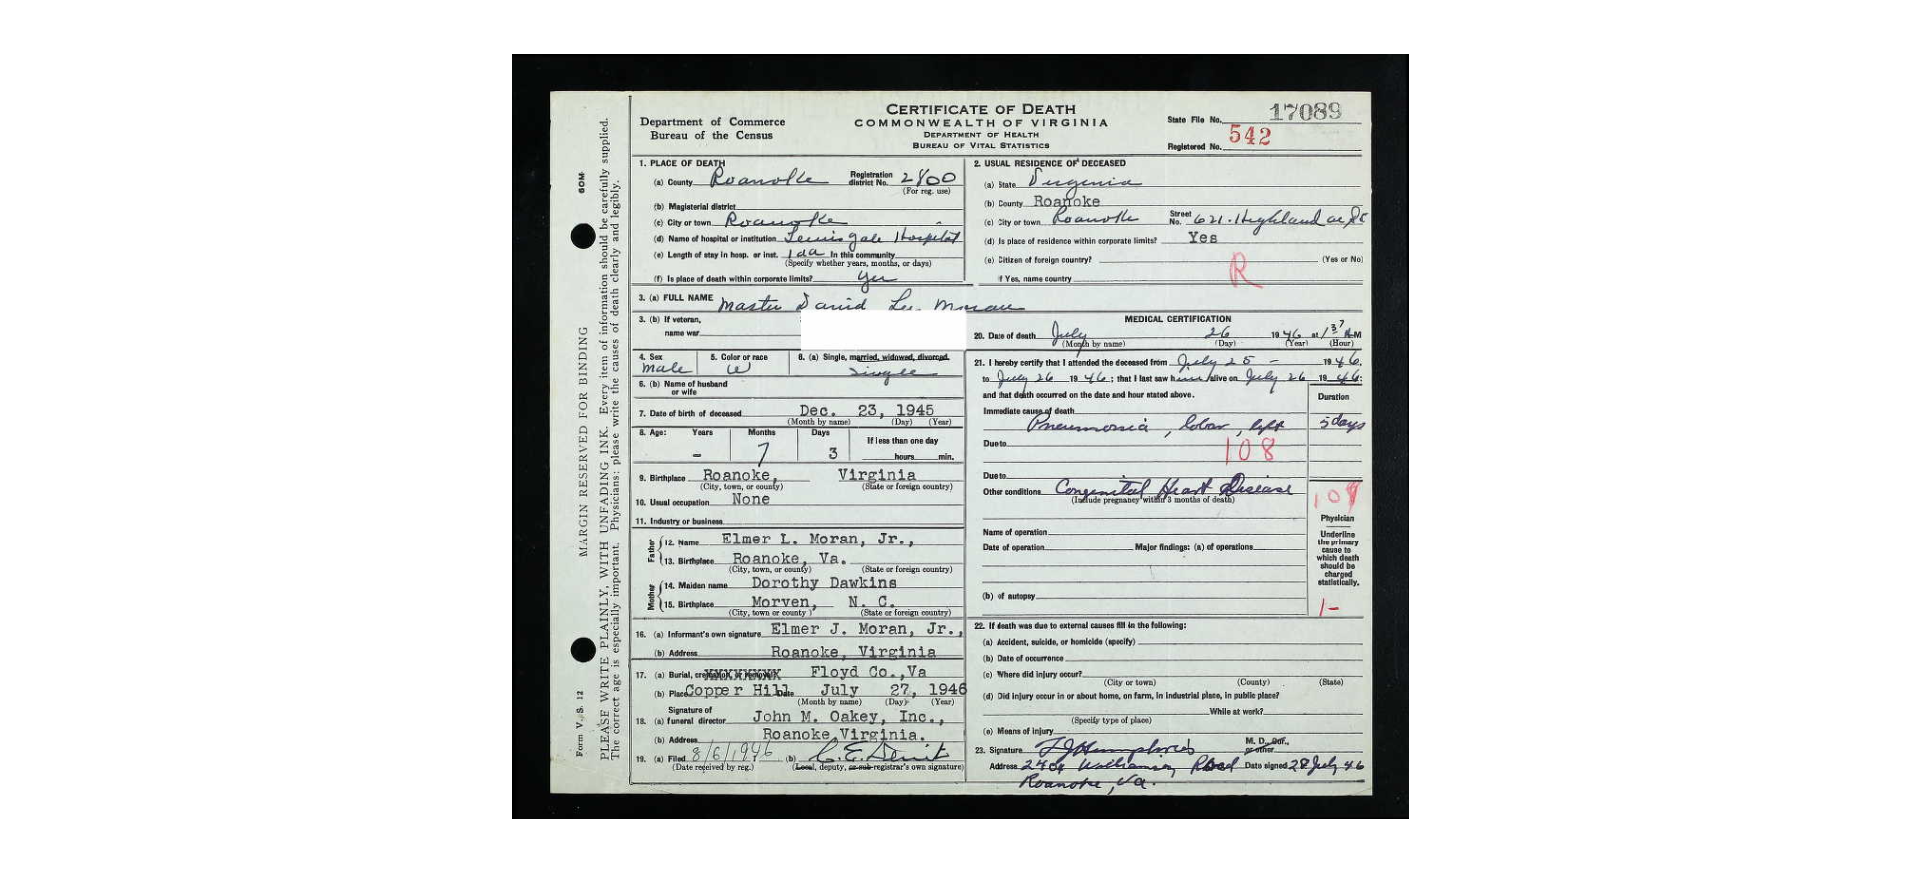 CERTIFICATE OF DEATH
COMMONWEALTH OF VIRGINIA
DEPARTMENT OF HEALTH
BUREAU OF VITAL STATISTICS
Department of Commerce
Bureau of the Census
State File No. 17089
Registered No. 542
60M
MARGIN RESERVED FOR BINDING
Form V. S. 12
PLEASE WRITE PLAINLY, WITH UNFADING INK. Every item of information should be carefully supplied.
The correct age is especially important. Physicians: please write the causes of death clearly and legibly.
1. PLACE OF DEATH
(a) County Roanoke Registration district No. 2800
(For reg. use)
(b) Magisterial district
(c) City or town Roanoke
(d) Name of hospital or institution Lewis gale Hospital
(e) Length of stay in hosp. or inst. 1 da In this community
(Specify whether years, months, or days)
(f) Is place of death within corporate limits? yes
2. USUAL RESIDENCE OF DECEASED
(a) State Virginia
(b) County Roanoke
(c) City or town Roanoke Street No. 621 Highland
(d) Is place of residence within corporate limits? Yes
(e) Citizen of foreign country? (Yes or No)
If Yes, name country
R
3. (a) FULL NAME Master David Lee Moran
3. (b) If veteran,
name war
4. Sex male
5. Color or race W
6. (a) Single, married, widowed, divorced.
single
6. (b) Name of husband
or wife
7. Date of birth of deceased Dec. 23, 1945
(Month by name) (Day) (Year)
8. Age: Years Months Days If less than one day
– 7 3 hours min.
9. Birthplace Roanoke, Virginia
(City, town, or county) (State or foreign country)
10. Usual occupation None
11. Industry or business
Father
12. Name Elmer L. Moran, Jr.,
13. Birthplace Roanoke, Va.
(City, town, or county) (State or foreign country)
Mother
14. Maiden name Dorothy Dawkins
15. Birthplace Morven, N. C.
(City, town or county) (State or foreign country)
16. (a) Informant's own signature Elmer J. Moran, Jr.,
(b) Address Roanoke, Virginia
17. (a) Burial, cremation or removal XXXXXXXX Floyd Co.,Va
(b) Place Copper Hill Date July 27, 1946
(Month by name) (Day) (Year)
Signature of
18. (a) funeral director John M. Oakey, Inc.,
(b) Address Roanoke,Virginia.
19. (a) Filed 8/6/1946 (b) C. E. Denit
(Date received by reg.) (Local, deputy, or sub-registrar's own signature)
MEDICAL CERTIFICATION
20. Date of death July 26 1946 at 1 37 A M
(Month by name) (Day) (Year) (Hour)
21. I hereby certify that I attended the deceased from July 25 – 1946.
to July 26 1946; that I last saw him alive on July 26 1946:
and that death occurred on the date and hour stated above.
Duration
Immediate cause of death
Pneumonia, lobar, left 5 days
Due to
108
Due to
Other conditions Congenital Heart Disease
(Include pregnancy within 3 months of death)
Name of operation
Date of operation Major findings: (a) of operations
(b) of autopsy
Physician
Underline
the primary
cause to
which death
should be
charged
statistically.
1-
22. If death was due to external causes fill in the following:
(a) Accident, suicide, or homicide (specify)
(b) Date of occurrence
(c) Where did injury occur?
(City or town) (County) (State)
(d) Did injury occur in or about home, on farm, in industrial place, in public place?
While at work?
(Specify type of place)
(e) Means of injury
23. Signature Humphries M. D., Cor., or other
Address 2404 Williamson Road Date signed 28 July 46
Roanoke, Va.